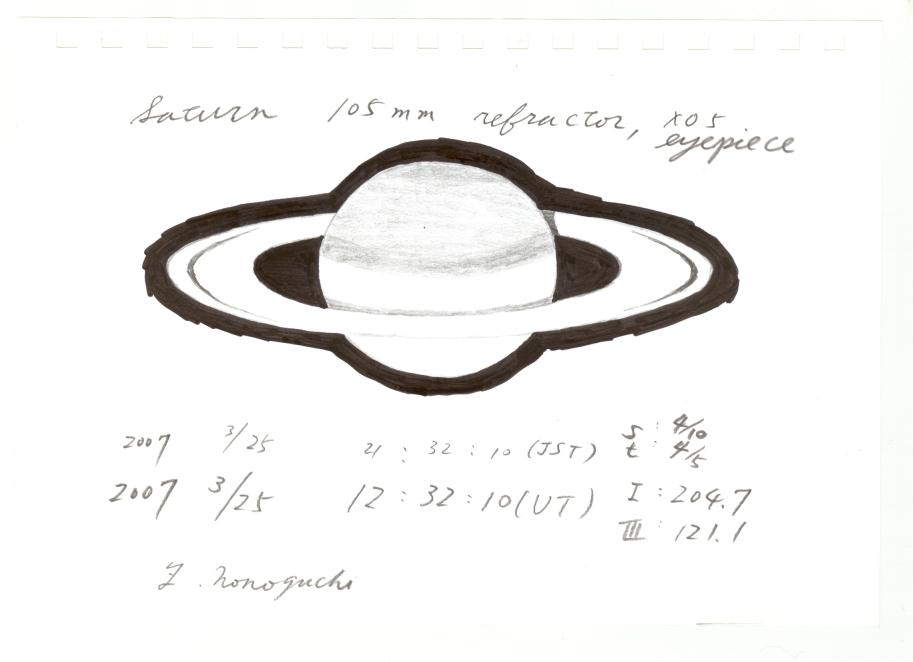 Saturn 105mm refractor, XO5
eyepiece
2007 3/25 21:32:10 (JST) S: 4/10
t: 4/5
2007 3/25 12:32:10 (UT) I: 204.7
III: 121.1
. Nonoguchi